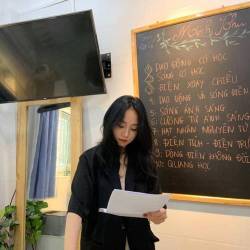 Mới Thi
1. DAO ĐỘNG CƠ HỌC
2. SÓNG CƠ HỌC
3. ĐIỆN XOAY CHIỀU
4. DAO ĐỘNG VÀ SÓNG ĐIỆN
5. SÓNG ÁNH SÁNG
6. LƯỢNG TỬ ÁNH SÁNG
7. HẠT NHÂN NGUYÊN TỬ
8. ĐIỆN TÍCH - ĐIỆN TRƯ
9. DÒNG ĐIỆN KHÔNG ĐỔI
10. QUANG HỌC